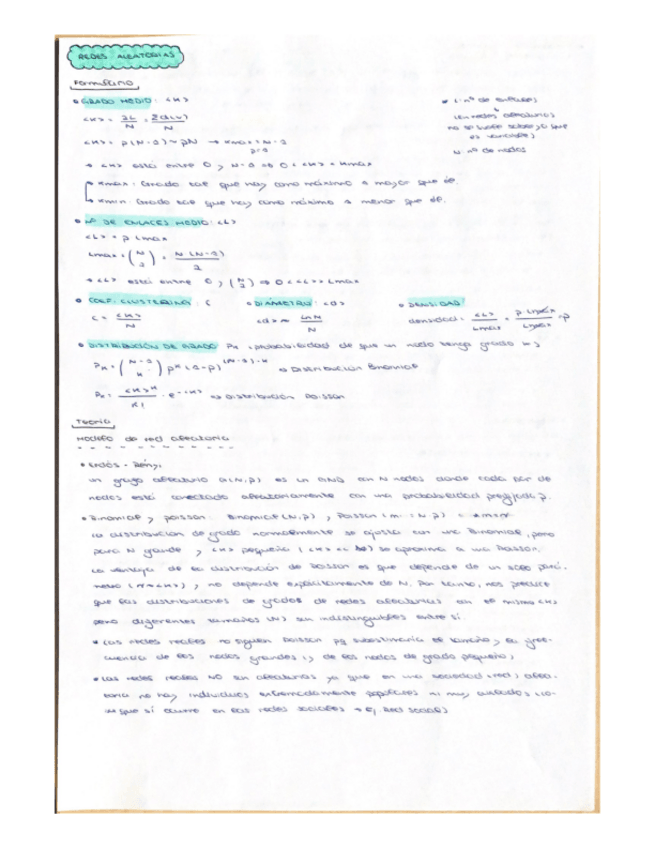 REDES ALEATORIAS
Formulario
• GRADO MEDIO: <K>
L: nº de enlaces
<K> = 2L/N = 
(en redes aleatorias
no se suele saber, ya que
es variable)
<K> = p(N-1) ~ pN → Kmax = N-1
N: nº de nodos
→ <K> está entre 0 y N-1 ⇒ 0 < <K> < Kmax
Kmax: Grado tal que hay como máximo 1 mayor que él.
Kmin: Grado tal que hay como máximo 1 menor que él.
• Nº DE ENLACES MEDIO: <L>
<L> = p Lmax
Lmax = (N 2) = N(N-1)/2
→ <L> está entre 0 y (N 2) ⇒ 0 < <L> < Lmax
• COEF. CLUSTERING: C • DIÁMETRO: <d> • DENSIDAD
C = <K>/N <d> ≈ densidad = <L>/Lmax = p Lmax/Lmax = p
• DISTRIBUCIÓN DE GRADO: PK = probabilidad de que un nodo tenga grado K
PK = (N-1 K) p^K (1-p)^(N-1)-K ⇒ Distribución Binomial
PK = <K>^K/K! · e^-<K> ⇒ Distribución Poisson
Teoría
Modelo de red aleatoria
• Erdös - Rényi
un grafo aleatorio G(N,p) es un grafo con N nodos donde cada par de
nodos está conectado aleatoriamente con una probabilidad prefijada p.
• Binomial y Poisson: Binomial(N,p) y Poisson
la distribución de grado normalmente se ajusta con una Binomial, pero
para N grande y <K> pequeño (<K> << N) se aproxima a una Poisson.
La ventaja de la distribución de Poisson es que depende de un solo pará-
metro y no depende explícitamente de N. Por tanto, nos predice
que las distribuciones de grados de redes aleatorias con el mismo <K>
pero diferentes tamaños (N) son indistinguibles entre sí.
• Las redes reales no siguen Poisson pq subestimaría el tamaño y la fre-
cuencia de los nodos grandes y de los nodos de grado pequeño
• Las redes reales NO son aleatorias ya que en una sociedad (red) alea-
toria no hay individuos extremadamente populares ni muy aislados, co-
sa que sí ocurre en las redes sociales → Ej. Red social